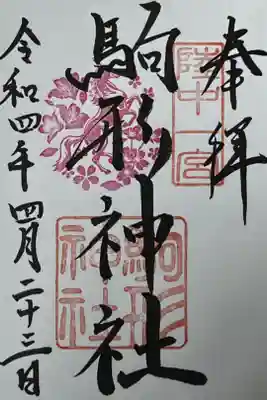 奉拝
陸中一宮
駒形神社
駒形神社
令和四年四月二十三日